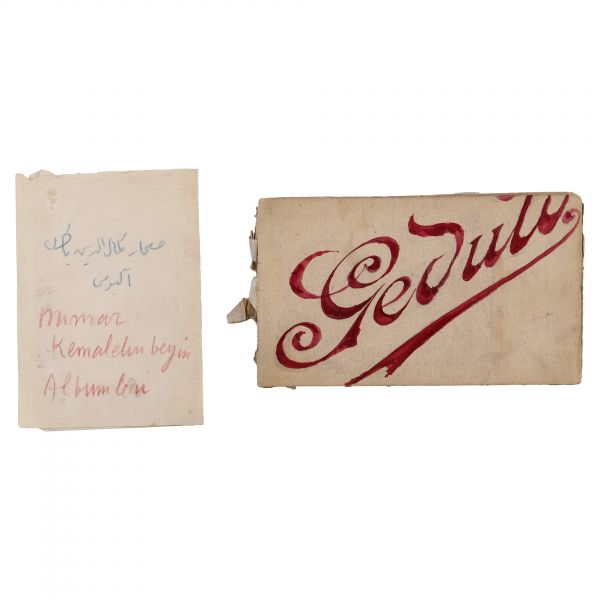 معمار كمال الدين بك
آلبومى
mimar
Kemaletin beyin
Albumleri
Geduld